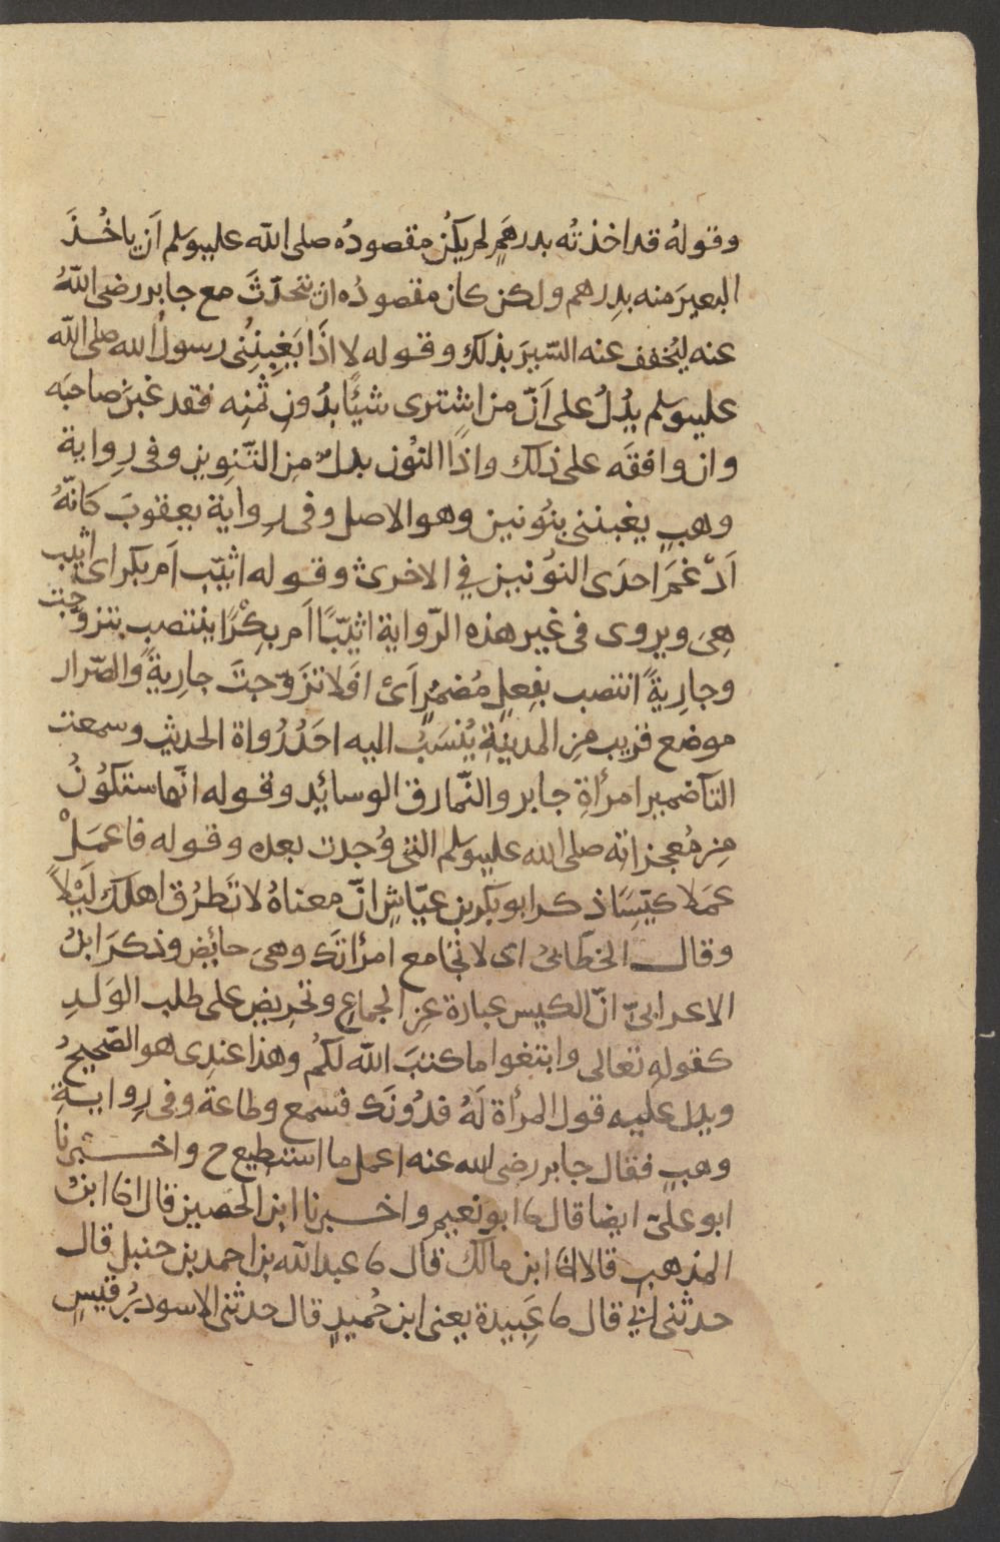 وقولهُ قد اخذتُه بدرهَمٍ لم يكُن مقصودُه صلى الله عليه وسلم اَن ياخُذَ
البعيرَ منه بدِرهم ولكن كان مقصودُه ان تتحدّثَ مع جابر رضى اللّهُ
عنه ليُخفف عنه السّيرَ بذلك وقوله لا اذًا يَغبِننُى رسولُ الله صلى اللّه
عليه وسلم يدُلُ على اَنّ من اشترى شيئًا بدُونِ ثمنِه فقد غبنَ صاحبَه
وان وافقَه على ذلك واذًا النوُن بدلٌ مِن التّنوِين وفى رِواية
وهبٍ يغبننى بنوُنين وهو الاصل وفى رِواية يعقوبَ كانّهُ
اَدْغمَ احدَى النوُنين في الاخرى وقوله اثيّب اَم بكر اى اثيّب
هِىَ ويروى فى غير هذه الرّواية اثيّبًا اَم بِكْرًا ينتصب بتزوّجت
وجارِيةً انتصب بفِعلٍ مُضمُرٍ اَىْ افلا تزَوّجتَ جارِيةً والصّرار
موضع قريب مِن المدينَةِ يُنسَبُ اليه احَدُ رُواة الحديثِ وسمعت
التآ ضمير امرأةِ جابر والنّمارق الوسائِد وقوله انّها ستكوُنُ
مِن مُعجزاته صلى الله عليه وسلم التى وُجدت بعده وقوله فاعمَلْ
عمَلا كيّسًا ذكر ابو بكر بن عيّاشٍ انّ معناهُ لا تَطرُق اهلك لَيْلاً
وقال الخطّابىُ اى لا تُجامع امرأتَك وهىَ حائِض وذكرَ ابنُ
الاعرابىّ انّ الكيس عبارة عِن الجماعِ وتحرِيض على طلب الوَلَدِ
كقولِه تعالى وابتغوا ما كتبَ اللّه لكُم وهذا عندِى هو الصّحيحُ
ويدل عليه قول المرأة لَهُ فدُونَك فسمع وطاعة وفى رِوايةِ
وهبٍ فقال جابر رضى الله عنه اعمل ما استطيع ح واخبرنا
ابو علىّ ايضا قال ثنا ابو نعيم واخبرنا ابن الحُصين قال انا ابنُ
المذهبِ قالا انا ابن مالك قال ثنا عبد اللّه بن احمد بن حنبل قال
حدثنى ابي قال ثنا عَبِيدة يعنى ابن حُميدٍ قال حدثنى الاسود بنُ قيسٍ